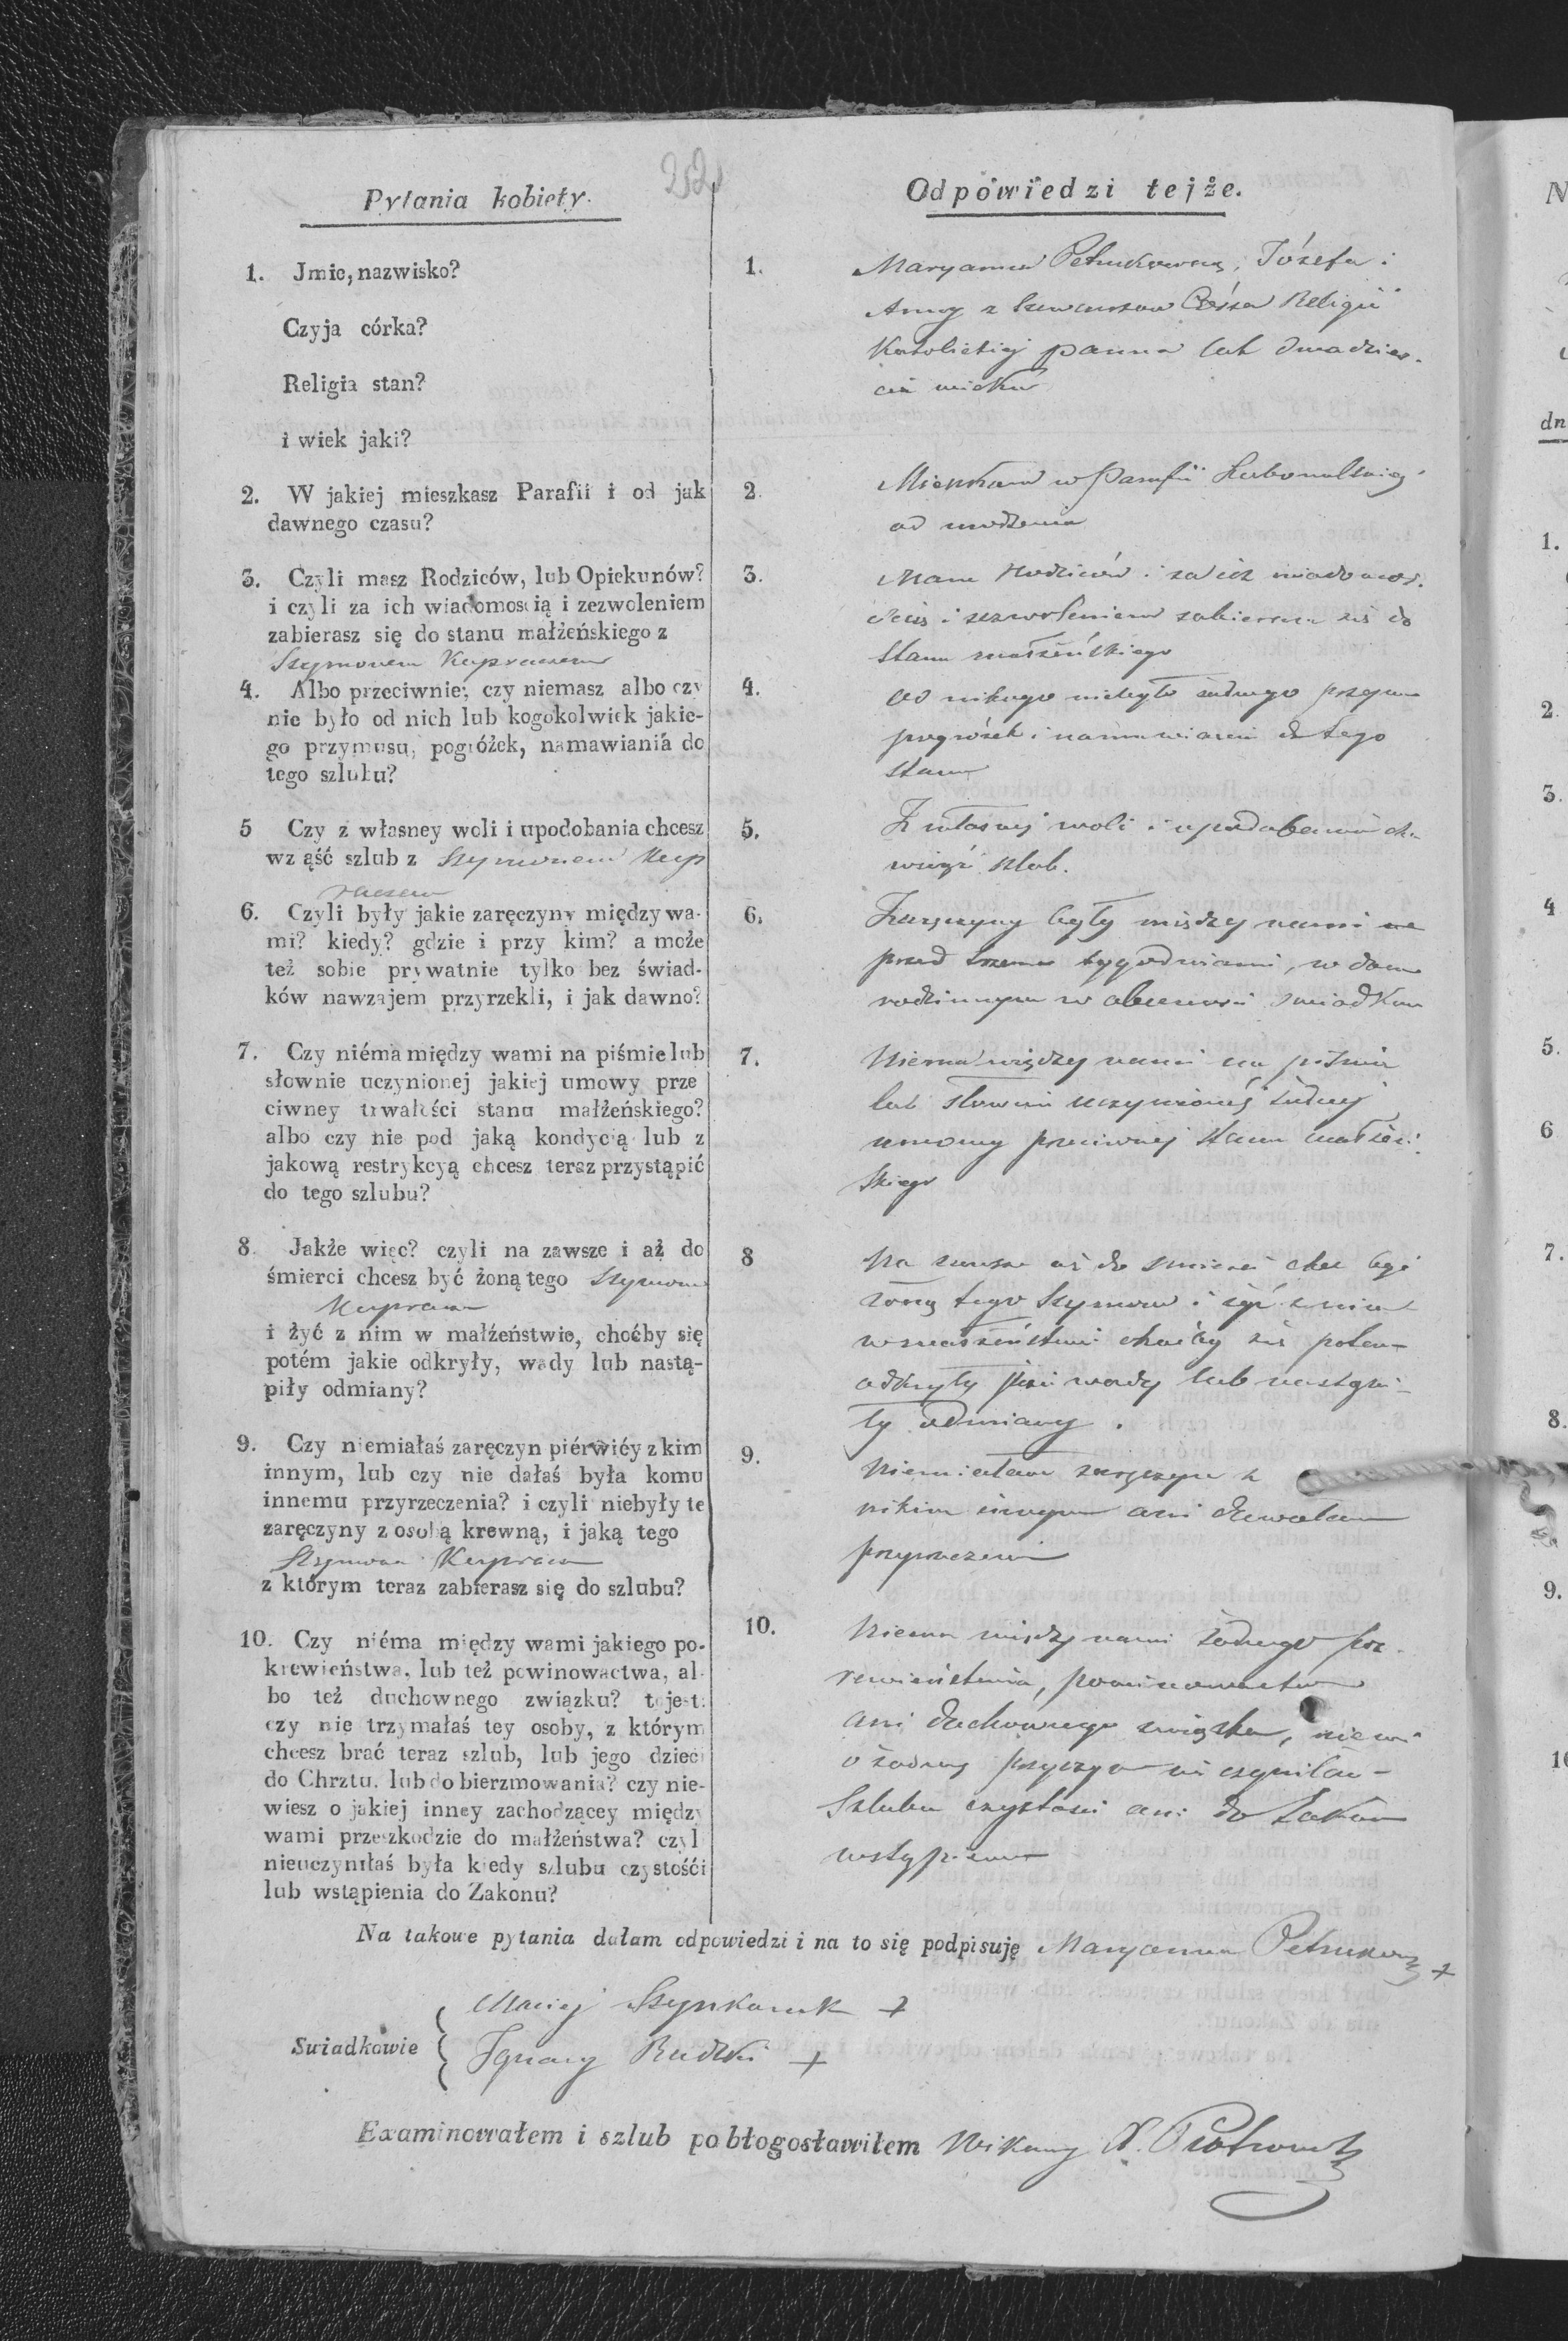 252
Pytania kobiety.
1. Jmie, nazwisko?
Czyja córka?
Religia stan?
i wiek jaki?
2. W jakiej mieszkasz Parafii i od jak
dawnego czasu?
3. Czyli masz Rodziców, lub Opiekunów?
i czyli za ich wiadomoscią i zezwoleniem
zabierasz się do stanu małżeńskiego z
Szymonem Kuprausem
4. Albo przeciwnie; czy niemasz albo czy
nie było od nich lub kogokolwiek jakie-
go przymusu, pogróżek, namawianiá do
tego szlubu?
5 Czy z własney woli i upodobania chcesz
wziąść szlub z Szymonem Kup
rausem
6. Czyli były jakie zaręczyny między wa-
mi? kiedy? gdzie i przy kim? a może
też sobie prywatnie tylko bez świad-
ków nawzajem przyrzekli, i jak dawno?
7. Czy niéma między wami na piśmie lub
słownie uczynionej jakiej umowy prze
ciwney trwałości stanu małżeńskiego?
albo czy nie pod jaką kondycią lub z
jakową restrykcyą chcesz teraz przystąpić
do tego szlubu?
8. Jakże więc? czyli na zawsze i aż do
śmierci chcesz być żoną tego Szymona
Kuprausa
i żyć z nim w małżeństwie, choćby się
potém jakie odkryły, wady lub nastą-
piły odmiany?
9. Czy niemiałaś zaręczyn piérwiéy z kim
innym, lub czy nie dałaś była komu
innemu przyrzeczenia? i czyli niebyły te
zaręczyny z osobą krewną, i jaką tego
Szymona Kuprausa
z którym teraz zabierasz się do szlubu?
10. Czy niéma między wami jakiego po-
krewieństwa, lub też powinowactwa, al-
bo też duchownego związku? tojest:
czy nie trzymałaś tey osoby, z którym
chcesz brać teraz szlub, lub jego dzieci
do Chrztu, lub do bierzmowania? czy nie-
wiesz o jakiej inney zachodzącey między
wami przeszkodzie do małżeństwa? czyl
nieuczyniłaś była kiedy szlubu czystośći
lub wstąpienia do Zakonu?
Odpówiedzi tejże.
1. Maryanna Petrukowna, Józefa i
Anny z Córka Religii
Katolickiej panna lat dwadzies-
cia wieku
2. Mieszkam w Parafii
od urodzenia
3. Mam Rodziców i za ich wiadomoś-
cią i zezwoleniem zabieram się do
stanu małżeńskiego
4. Od nikogo niebyło żadnego przymu
pogróżek i namawiania do tego
stanu
5. Z własnej woli i upodobania chcę
wziąść szlub.
6. Zaręczyny były między nami
przed trzema tygodniami, w domu
rodzinnym w obecności świadków
7. Niema między nami na piśmie
lub słownie uczynionej żadnej
umowy przeciwnej stanu małżeń-
skiego
8 Na zawsze aż do śmierci chcę być
żoną tego Szymona i żyć z nim
w małżeństwie choćby się potem
odkryły jakie wady lub nastąpi-
ły odmiany.
9. Niemiałam zaręczyn z
nikim innym ani dawałam
przyrzeczenia
10. Niema między nami żadnego po
rewieństwa, powinowactwa
ani duchownego związku, niewi
o żadnej przyczyn nie czyniłam
Szlubu czystości ani do Zakonu
wstąpienia
Na takowe pytania dałam odpowiedzi i na to się podpisuję Maryanna Petrukowna +
Maciej Szynkaruk +
Swiadkowie
Ignacy Rudzki +
Examinowałem i szlub pobłogosławiłem Wikary X. Piotrowski
N
dn
1.
2.
3.
4
5.
6
7.
8.
9.
10